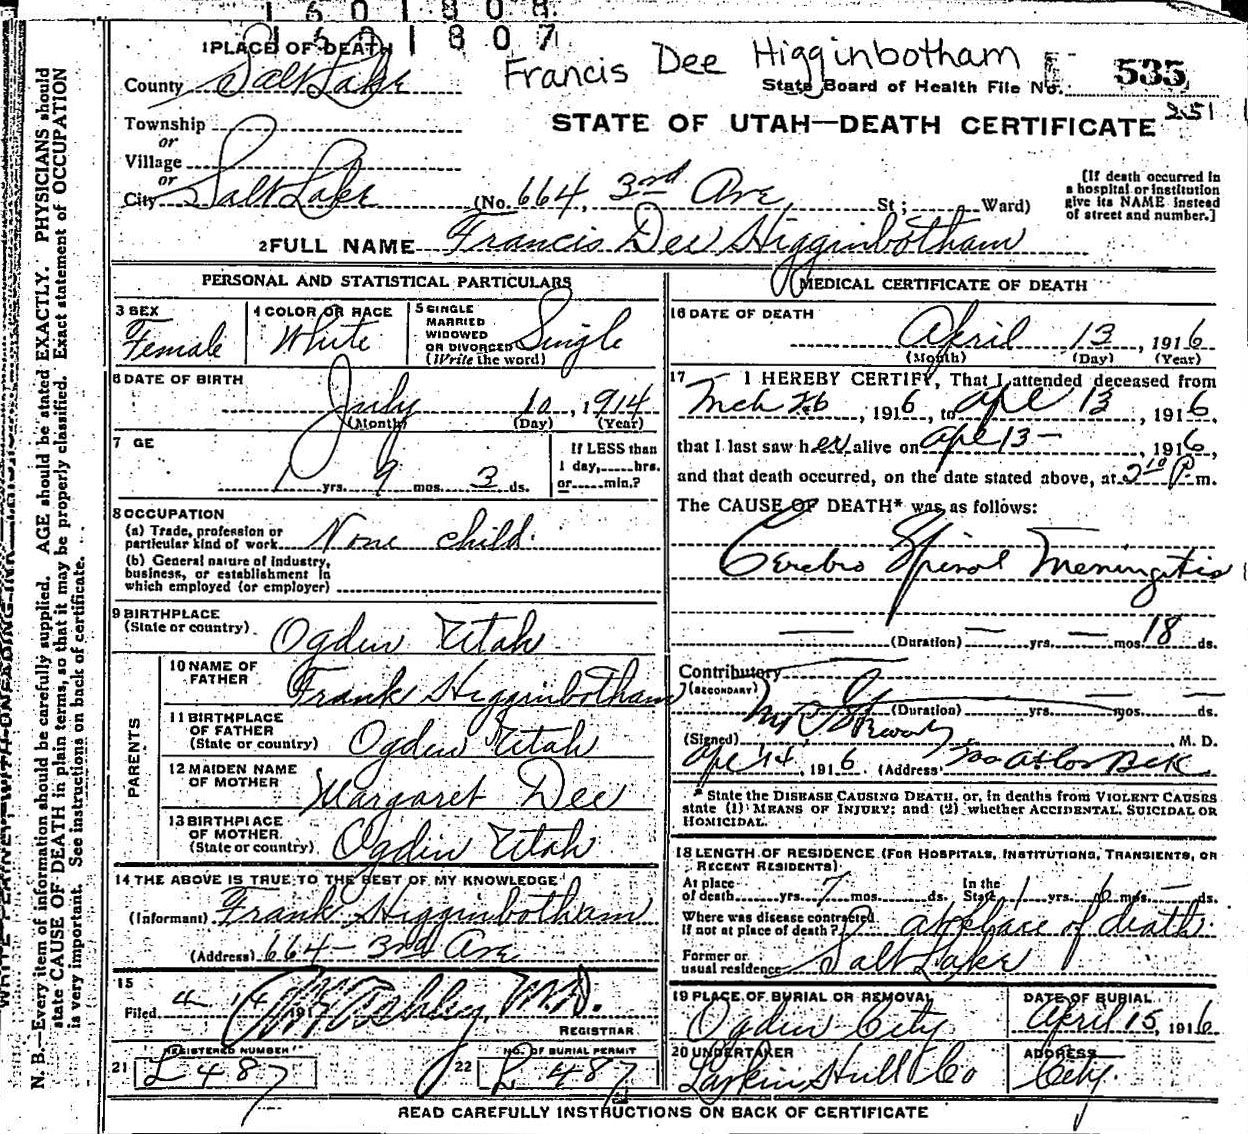 1601808
1601807
Francis Dee Higginbotham
1 PLACE OF DEATH
County Salt Lake
State Board of Health File No. 535
251
STATE OF UTAH—DEATH CERTIFICATE
Township
or
Village
or
City Salt Lake (No. 664, 3rd Ave St; Ward)
[If death occurred in
a hospital or institution
give its NAME instead
of street and number.]
2 FULL NAME Francis Dee Higginbotham
PERSONAL AND STATISTICAL PARTICULARS
3 SEX
Female
4 COLOR OR RACE
White
5 SINGLE
MARRIED
WIDOWED
OR DIVORCED
(Write the word)
Single
6 DATE OF BIRTH
July 10, 1914
(Month) (Day) (Year)
7 GE
1 yrs. 9 mos. 3 ds.
If LESS than
1 day, hrs.
or min.?
8 OCCUPATION
(a) Trade, profession or
particular kind of work None child.
(b) General nature of industry,
business, or establishment in
which employed (or employer)
9 BIRTHPLACE
(State or country) Ogden Utah
PARENTS
10 NAME OF
FATHER Frank Higginbotham
11 BIRTHPLACE
OF FATHER
(State or country) Ogden Utah
12 MAIDEN NAME
OF MOTHER Margaret Dee
13 BIRTHPLACE
OF MOTHER
(State or country) Ogden Utah
14 THE ABOVE IS TRUE TO THE BEST OF MY KNOWLEDGE
(Informant) Frank Higginbotham
(Address) 664 - 3rd Ave
15
Filed 4 14 191 M.D.
REGISTRAR
21 REGISTERED NUMBER
L 487
22 NO. OF BURIAL PERMIT
L 487
MEDICAL CERTIFICATE OF DEATH
16 DATE OF DEATH
April 13, 1916
(Month) (Day) (Year)
17 I HEREBY CERTIFY, That I attended deceased from
Mch 26, 1916, to Apl 13, 1916,
that I last saw her alive on Apl 13 - 1916,
and that death occurred, on the date stated above, at 2 10 P m.
The CAUSE OF DEATH* was as follows:
Cerebro Spinal Meningitis
(Duration) — yrs. — mos. 18 ds.
Contributory
(SECONDARY)
(Duration) yrs. — mos. — ds.
(Signed) M. D.
Apl 14, 1916 (Address)
* State the DISEASE CAUSING DEATH, or, in deaths from VIOLENT CAUSES
state (1) MEANS OF INJURY; and (2) whether ACCIDENTAL, SUICIDAL OR
HOMICIDAL.
18 LENGTH OF RESIDENCE (FOR HOSPITALS, INSTITUTIONS, TRANSIENTS, OR
RECENT RESIDENTS)
At place
of death yrs. 7 mos. ds. In the
State 1 yrs. 6 mos. — ds.
Where was disease contracted
if not at place of death? at place of death.
Former or
usual residence Salt Lake
19 PLACE OF BURIAL OR REMOVAL
Ogden City
DATE OF BURIAL
April 15, 1916
20 UNDERTAKER
Larkin Hull Co
ADDRESS
City.
READ CAREFULLY INSTRUCTIONS ON BACK OF CERTIFICATE
N. B.—Every item of information should be carefully supplied. AGE should be stated EXACTLY. PHYSICIANS should
state CAUSE OF DEATH in plain terms, so that it may be properly classified. Exact statement of OCCUPATION
is very important. See instructions on back of certificate.